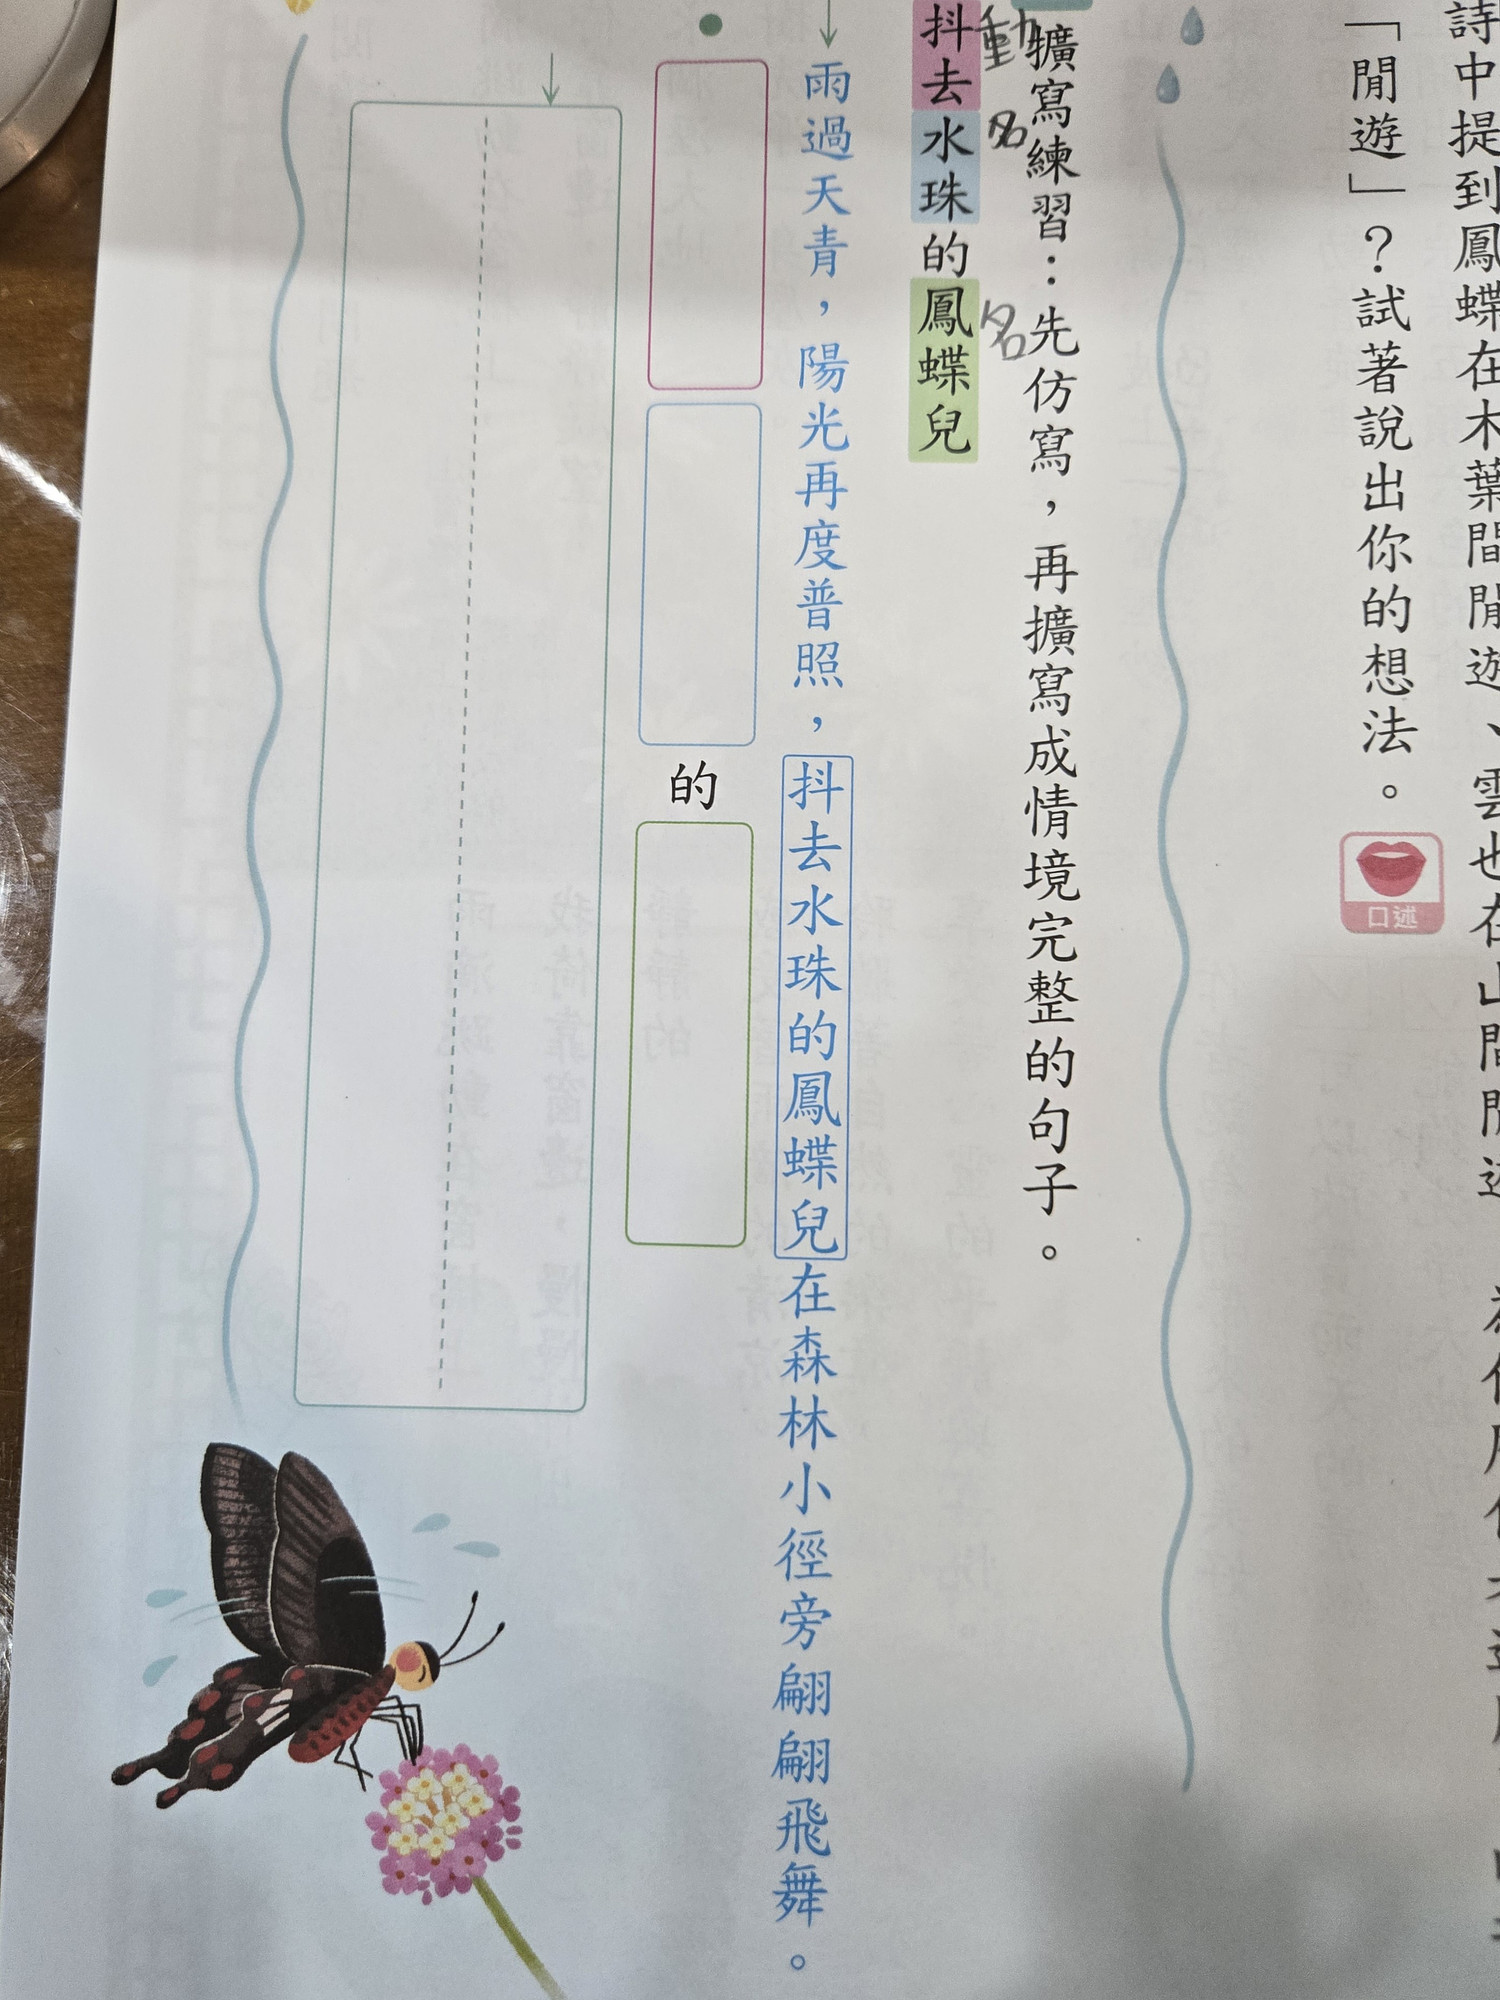 詩中提到鳳蝶在木葉間閒遊、雲也在山間閒遊
「閒遊」？試著說出你的想法。
口述
擴寫練習：先仿寫，再擴寫成情境完整的句子。
動 名 名
抖去水珠的鳳蝶兒
雨過天青，陽光再度普照，抖去水珠的鳳蝶兒在森林小徑旁翩翩飛舞。
的